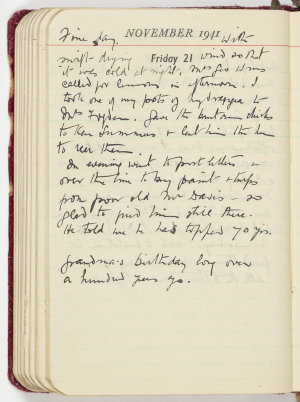 NOVEMBER 1941
Fine day. With
swift drying Friday 21 wind so that
it was cold at night. Mrs Geo Wms
called for lemons in afternoon. I
took one of my pots of hydrangea to
Mrs. Gave the bantam chicks
to Ken Summers & lent him the hen
to rear them.
In evening went to post letters &
over the line to buy paint &
from poor old Mr Davis - so
glad to find him still there.
He told me he had topped 70 yrs.
Grandma's birthday long over
a hundred years ago.